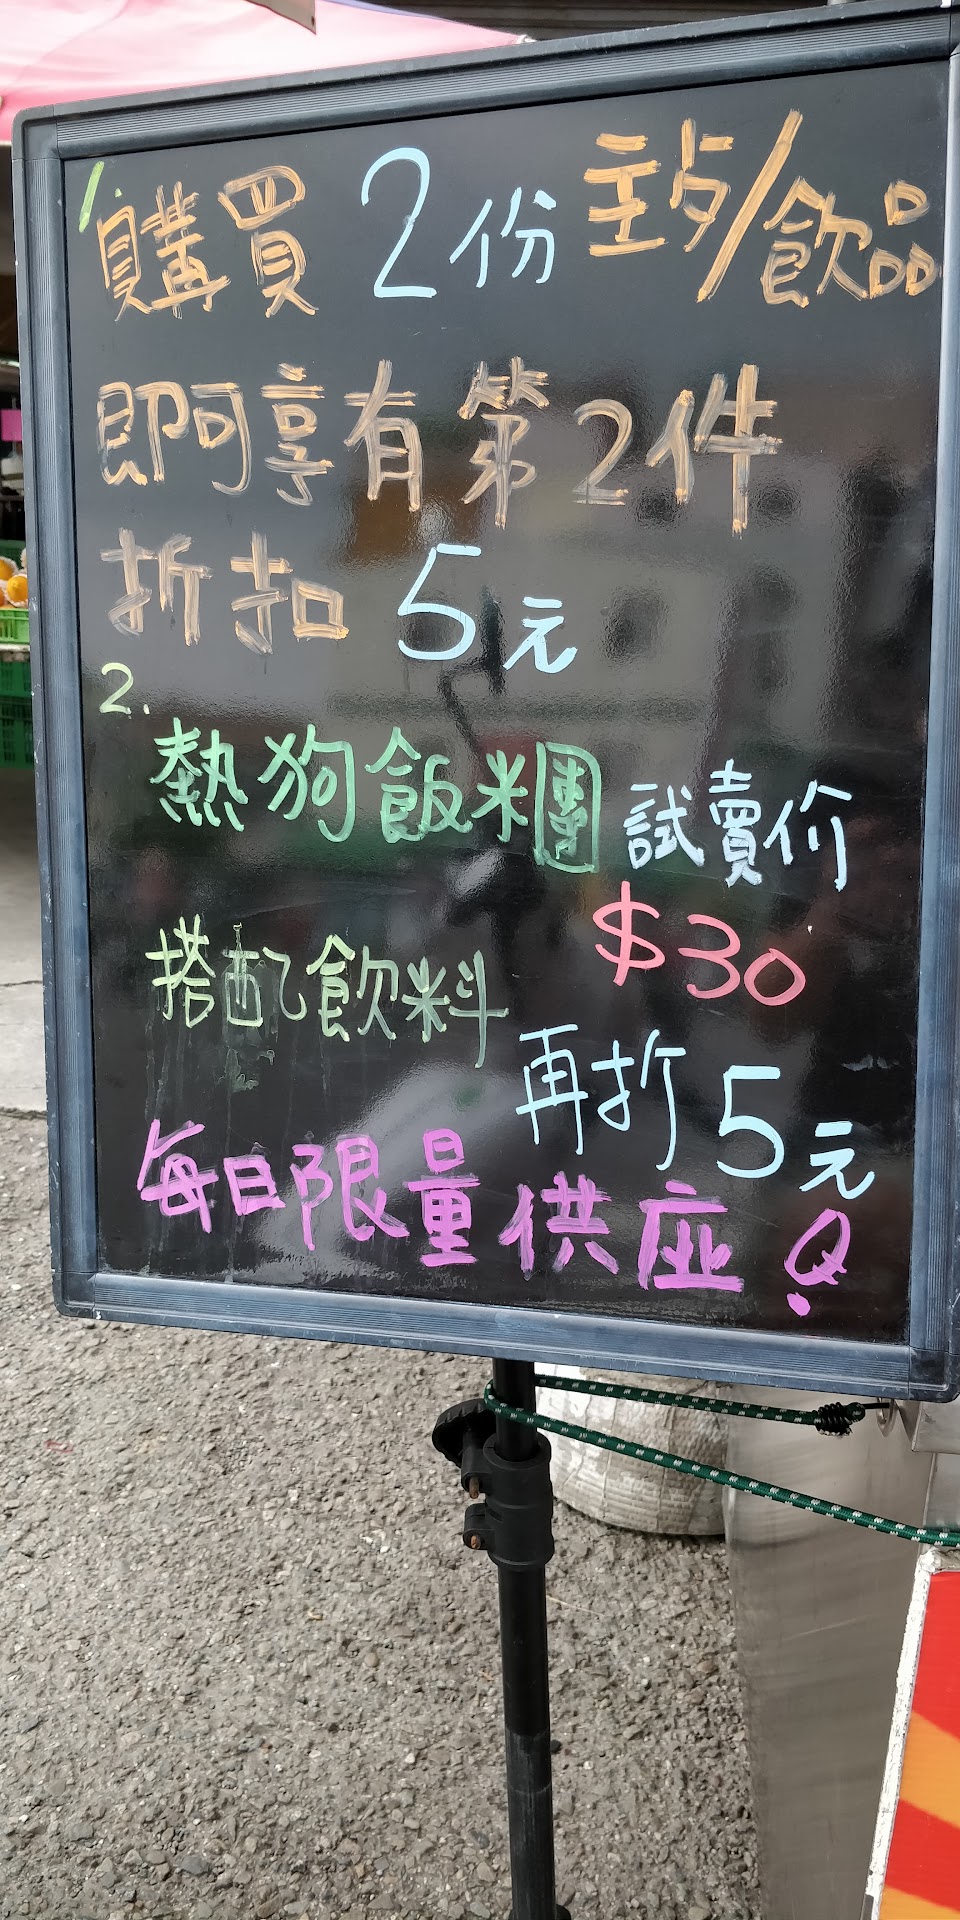 1.購買2份主占/飲品
即可享有第2件
折扣5元
2.
熱狗飯糰 試賣价
$30
搭配飲料
再折5元
每日限量供应